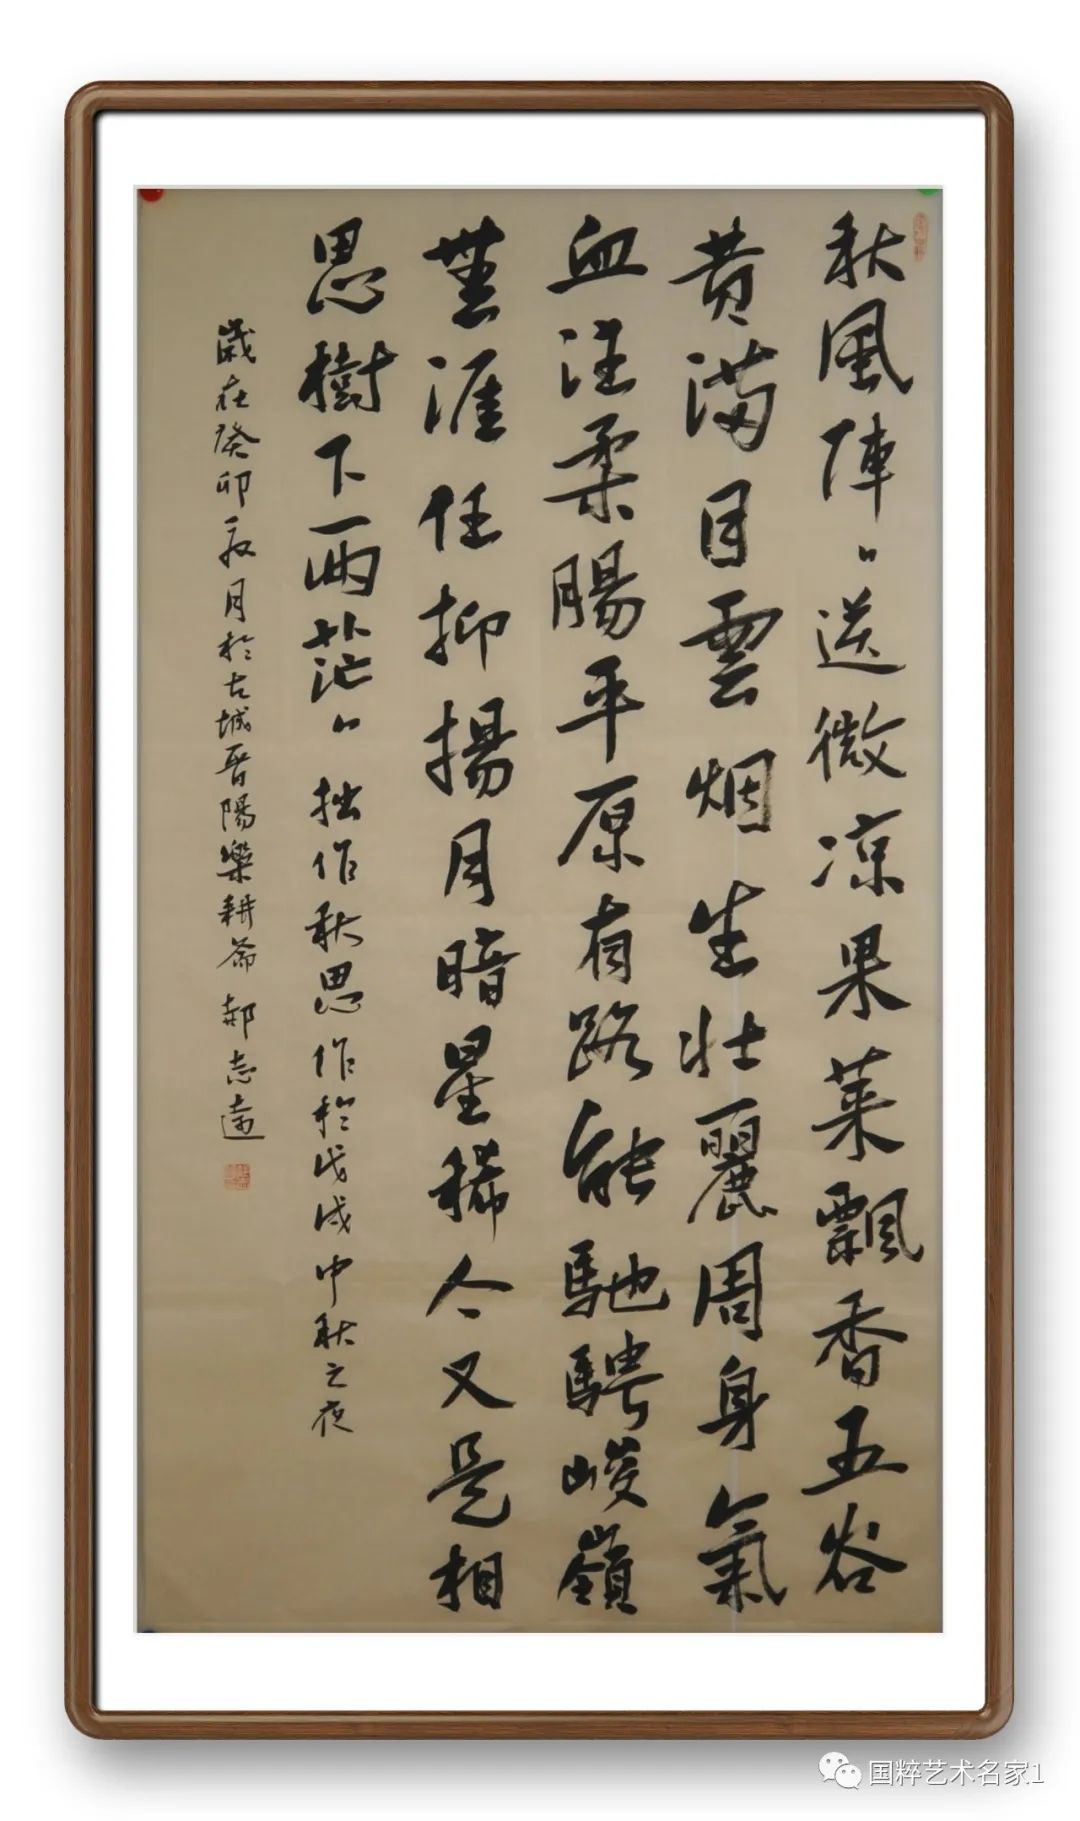 秋風陣〻送微凉果菜飄香五谷
黄满目雲烟生壮麗周身氣
血注柔腸平原有路能馳騁峻嶺
無涯任抑揚月暗星稀今又是相
思樹下两茫〻拙作秋思作於戊戌中秋之夜
歲在癸卯敘月於古城晋陽樂耕斋郝志遠
国粹艺术名家1